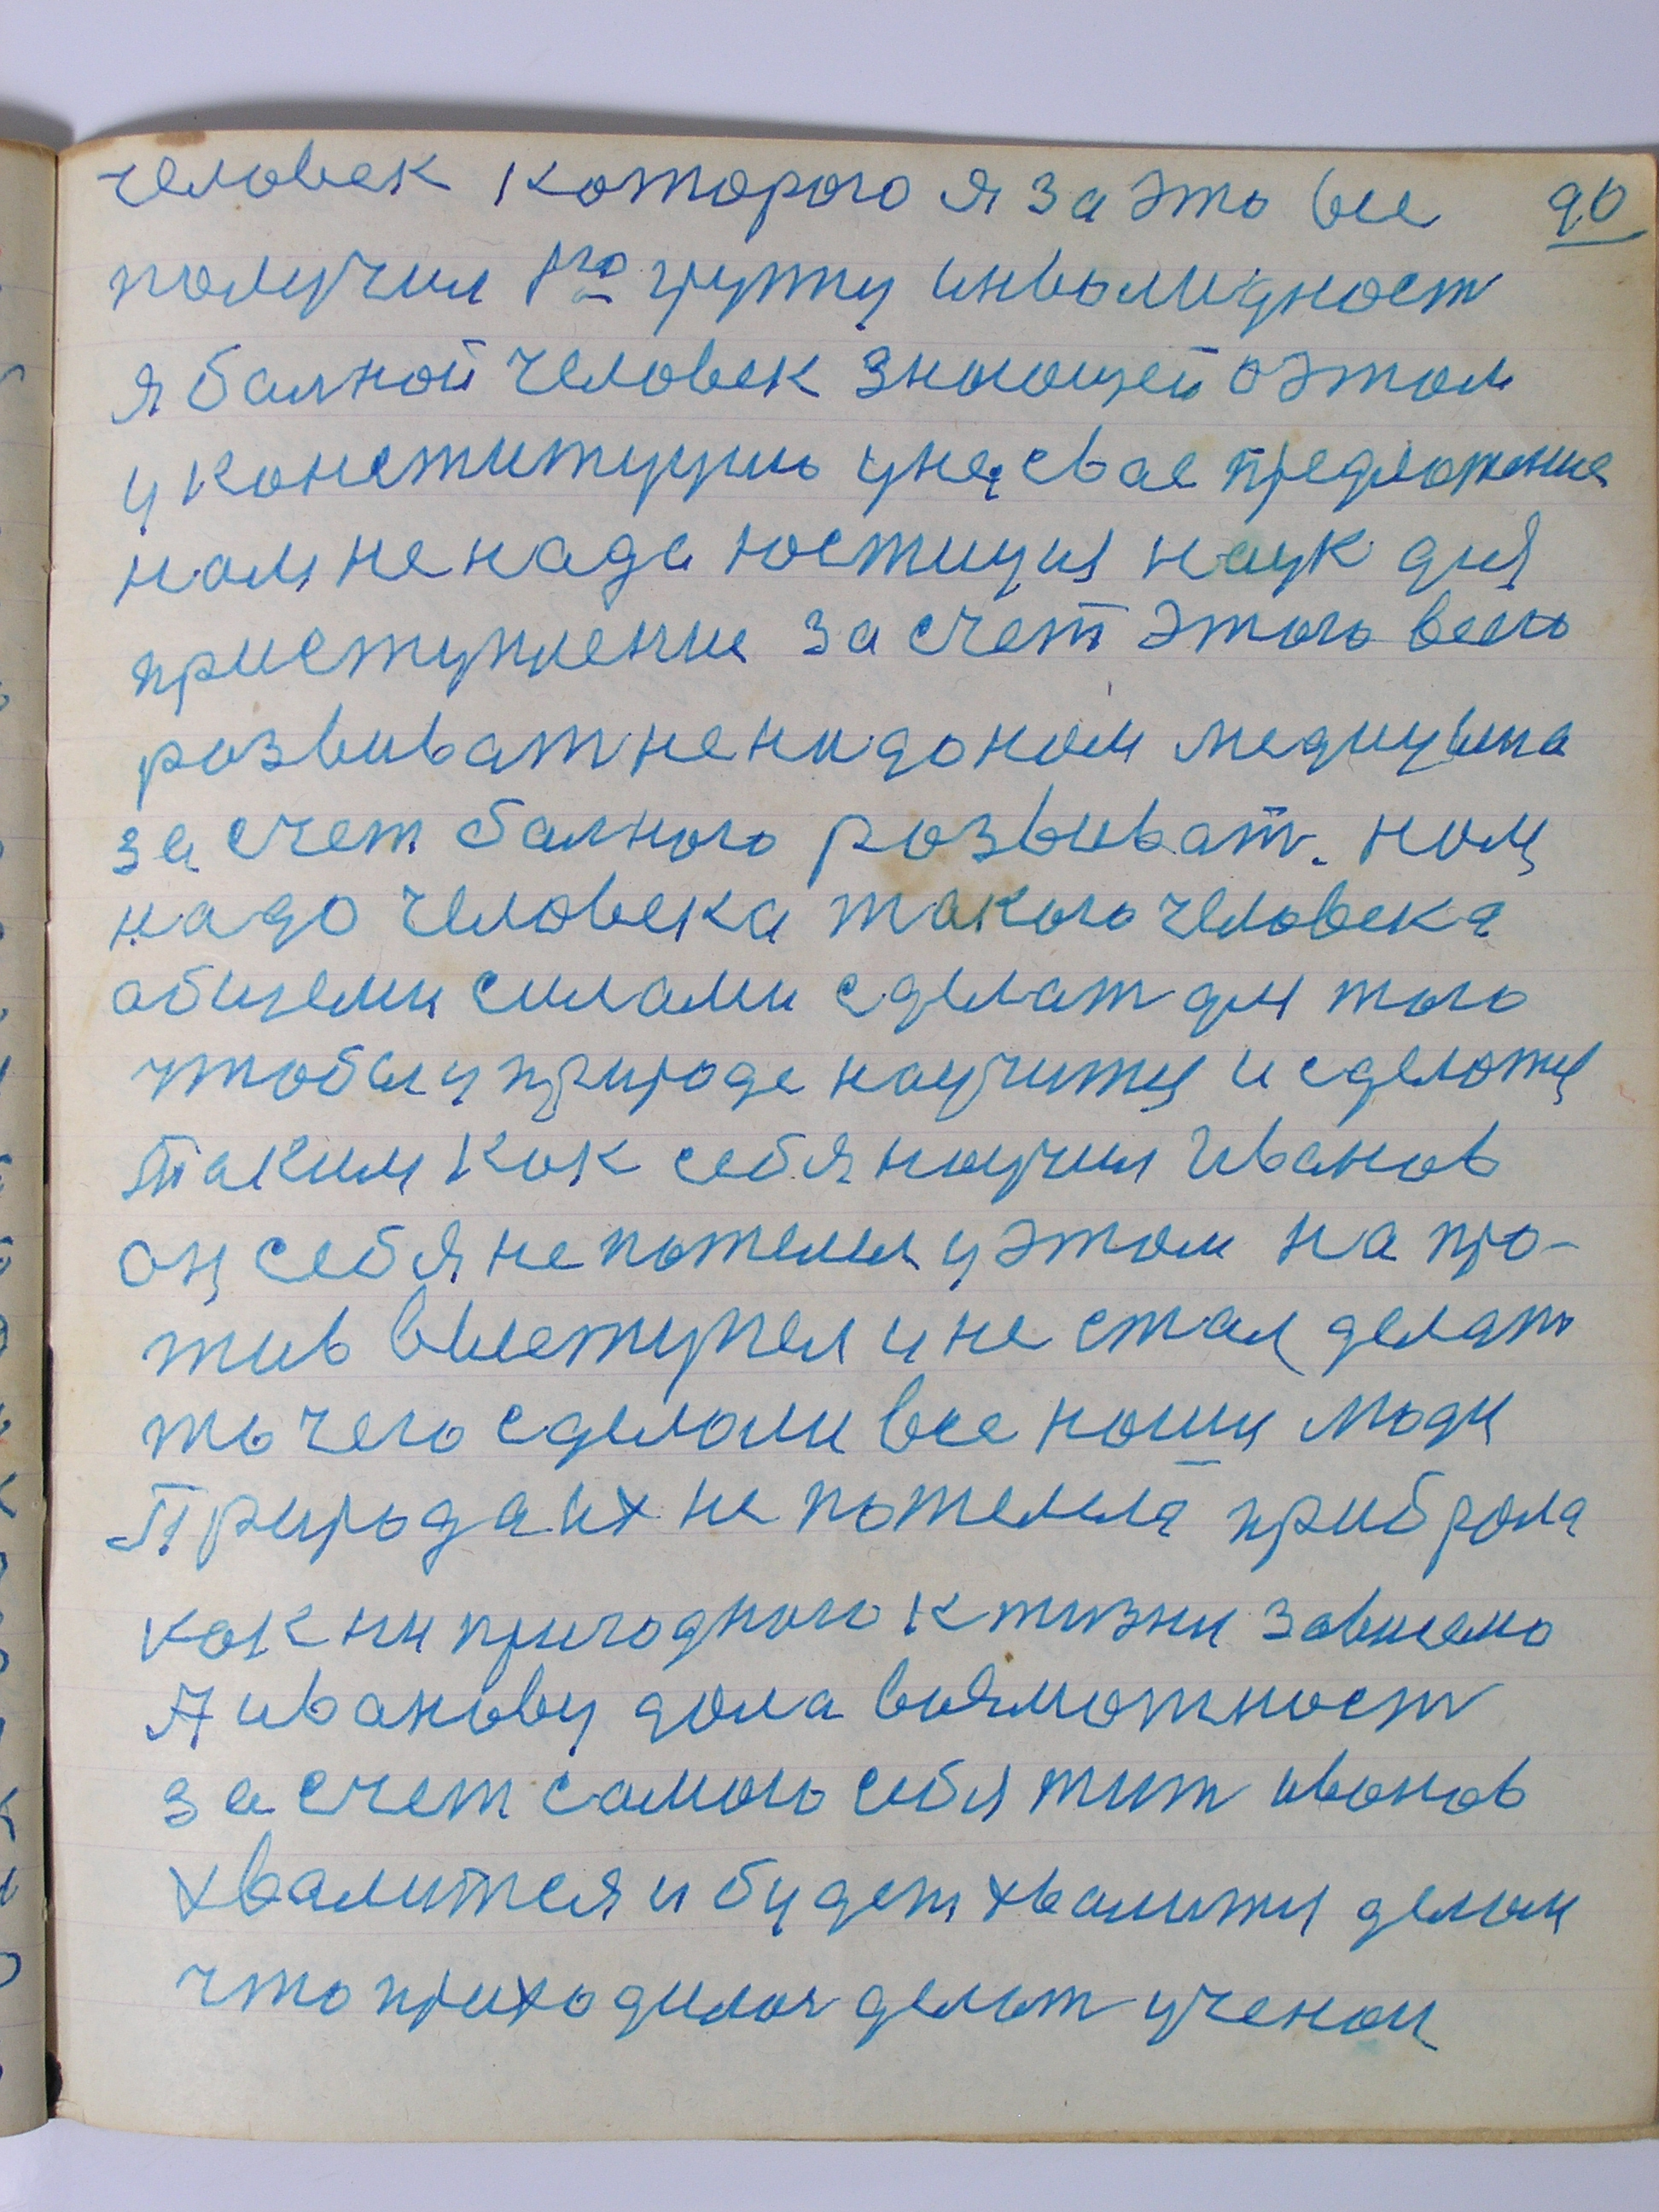 человек которого я за это все 90
получил 1го группу инвалидност
я балной человек знающей о этом
у конституцию унес свае предложение
нам не нада юстиция наук для
приступление за счет этого всего
розвиват не надо нам медицина
за счет балного розвиват. нам
надо человека такого человека
общеми силами сделат для того
чтобы у природе научитця и сделатця
таким как себя научил Иванов
он себя не пожелел у этом на про-
тив выступел и не стал делать
то чего сделали все наши люди
Природа их не пожелела прибрала
как ни пригодного к жизни завсемо
А иванову дала возможност
за счет самого себя жит иванов
хвалится и будет хвалитця делам
что приходилос делат ученом